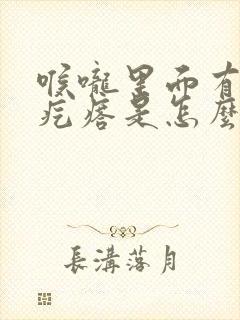 喉嚨里面有
疙瘩是怎麽
長溝落月